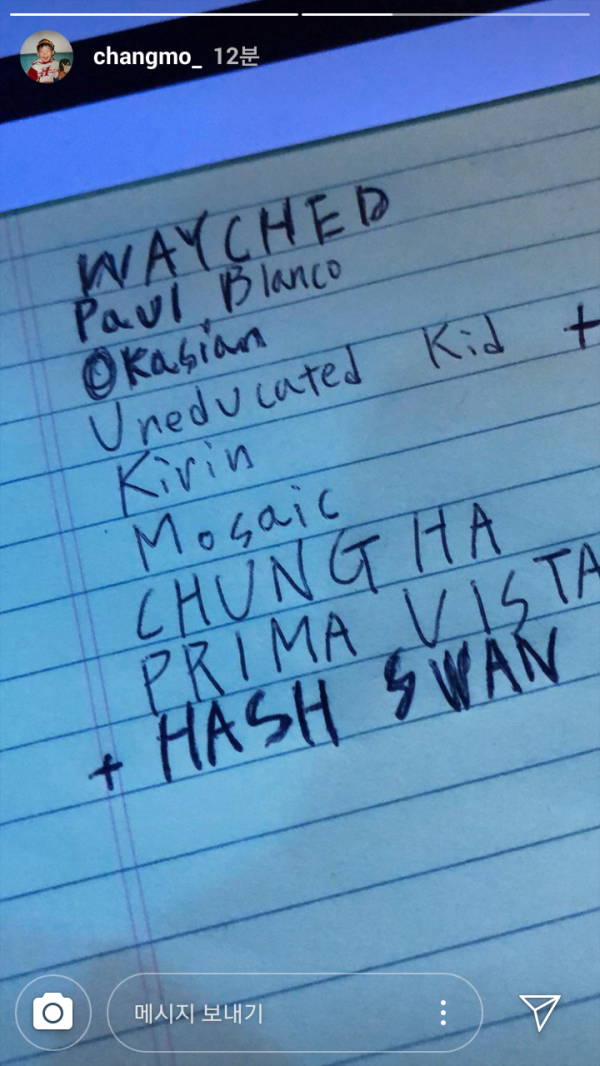 changmo_ 12분
WAYCHED
Paul Blanco
Okasian
Uneducated Kid +
Kirin
Mosaic
CHUNG HA
PRIMA VISTA
+ HASH SWAN
메시지 보내기